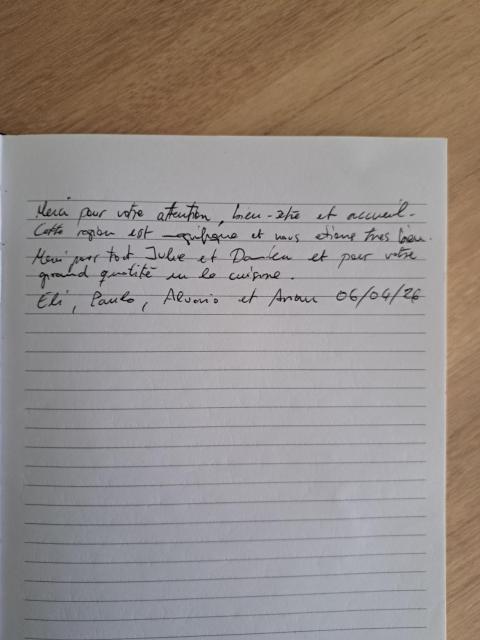 Merci pour votre attention, bien-être et accueil.
Cette region est magnifique et nous étions tres bien.
Merci pour tout Julie et Damien et pour votre
grand qualité en la cuisine.
Eli, Paulo, Alvaro et 06/04/26